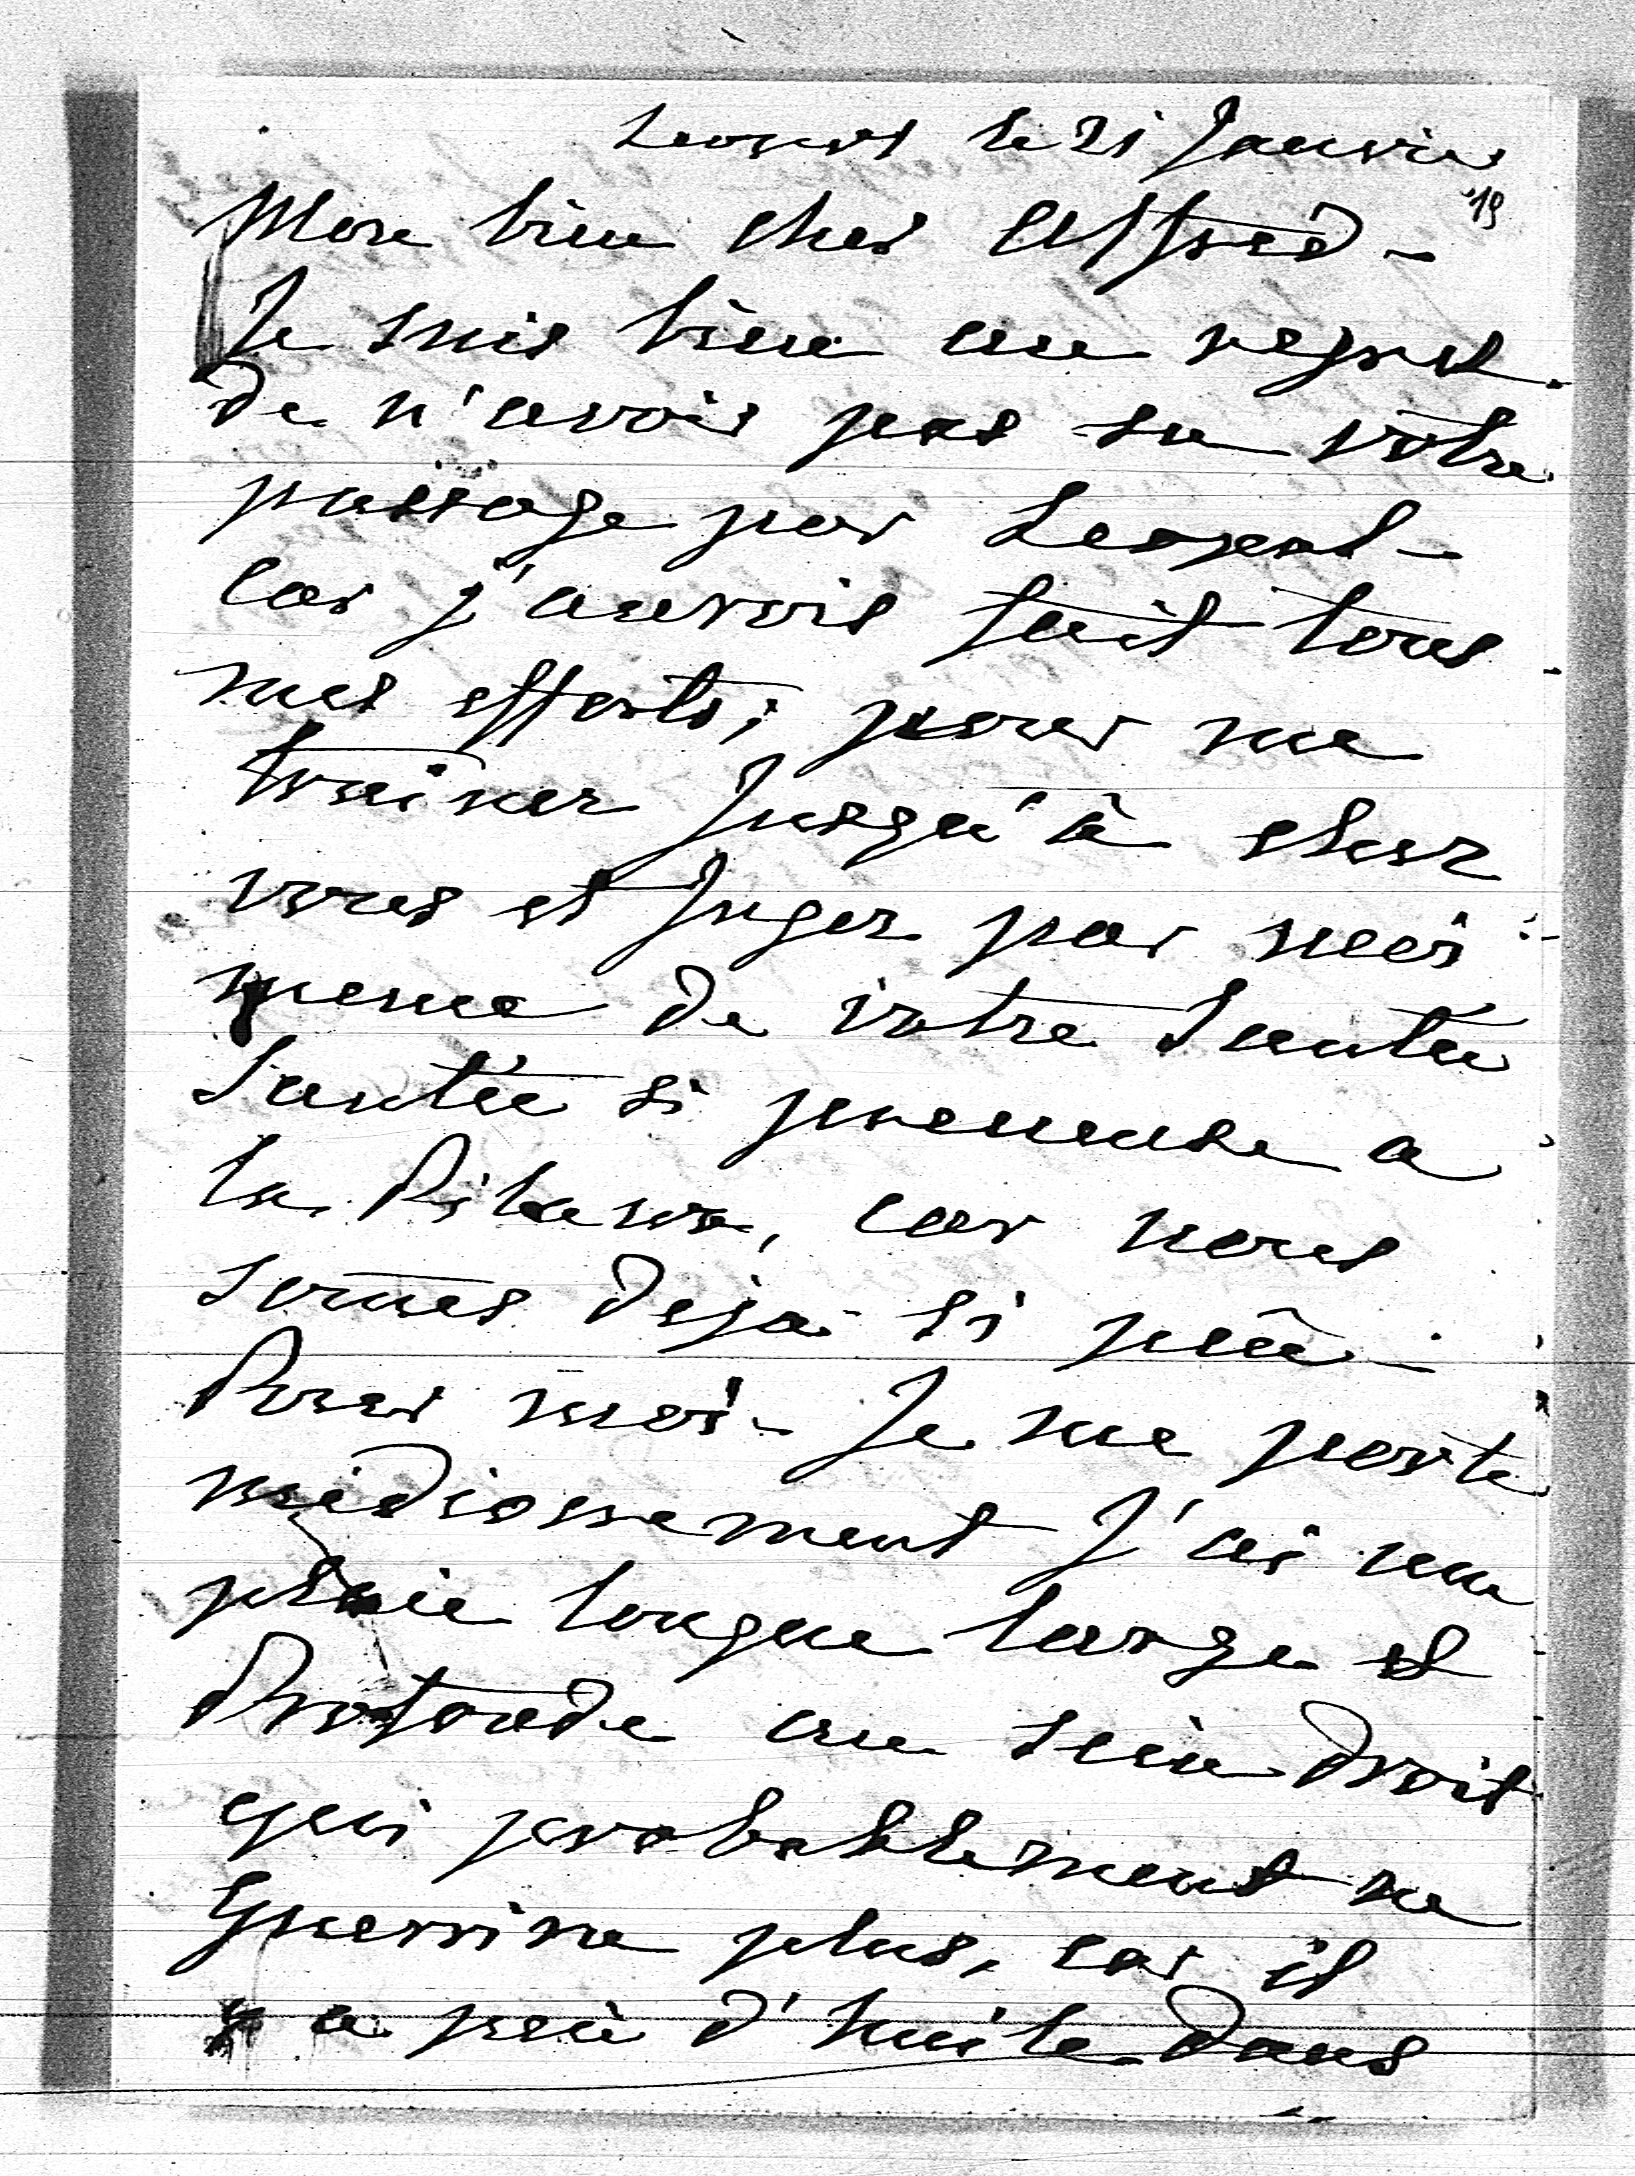 Leopol le 21 Janvier
'19
Mon bien cher Alfred -
Je suis bien au regret
de n'avoir pas su vôtre
passage par Leopol -
car j'aurois fait tous
mes efforts; pour me
trainer jusqu'à chez
vous et juger par moi
meme de vôtre Santée
Santée si precieuse a
la Pilawa, car nous
som̄es deja si peû -
Pour moi - Je me porte
médiocrement J'ai une
plaie longue large et
Profonde au sein droit
qui probablement ne
Guerrira plus, car il
y a peù d'huile dans